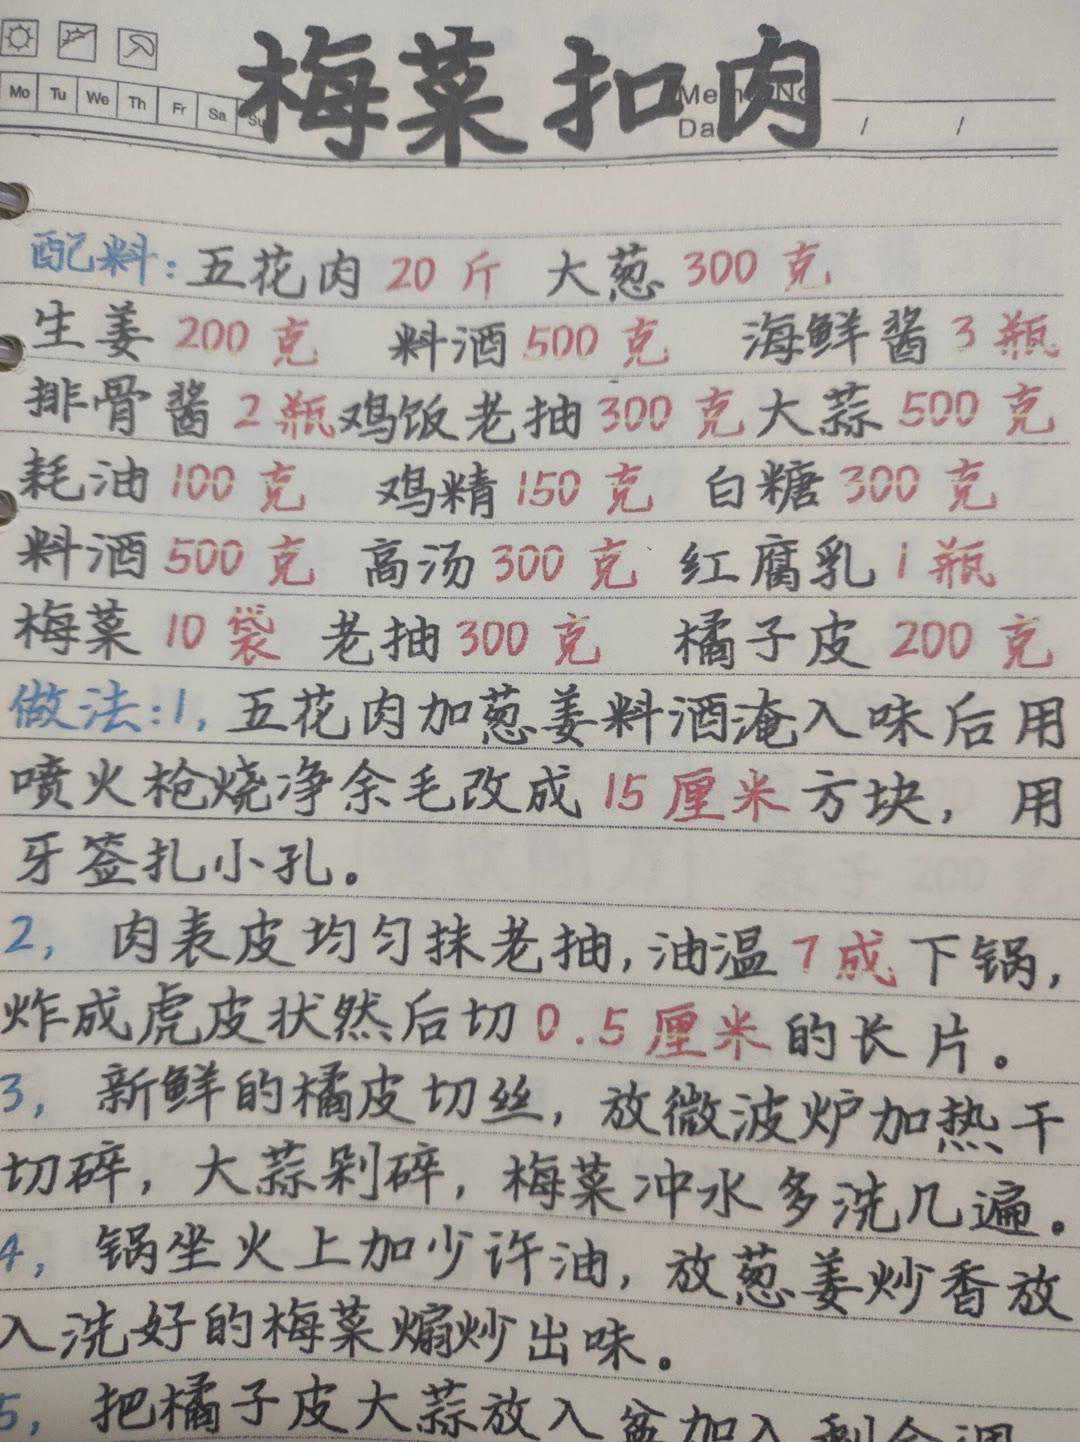 梅菜扣肉
Mo Tu We Th Fr Sa Su
Memo No
Da / /
配料:五花肉 20 斤 大葱 300 克
生姜 200 克 料酒 500 克 海鲜酱 3 瓶
排骨酱 2 瓶 鸡饭老抽 300 克 大蒜 500 克
耗油 100 克 鸡精 150 克 白糖 300 克
料酒 500 克 高汤 300 克 红腐乳 1 瓶
梅菜 10 袋 老抽 300 克 橘子皮 200 克
做法:1,五花肉加葱姜料酒淹入味后用
喷火枪烧净余毛改成 15 厘米方块,用
牙签扎小孔。
2,肉表皮均匀抹老抽,油温 7 成下锅,
炸成虎皮状然后切 0.5 厘米的长片。
3,新鲜的橘皮切丝,放微波炉加热干
切碎,大蒜剁碎,梅菜冲水多洗几遍。
4,锅坐火上加少许油,放葱姜炒香放
入洗好的梅菜煸炒出味。
5,把橘子皮大蒜放入盆加入剩余调